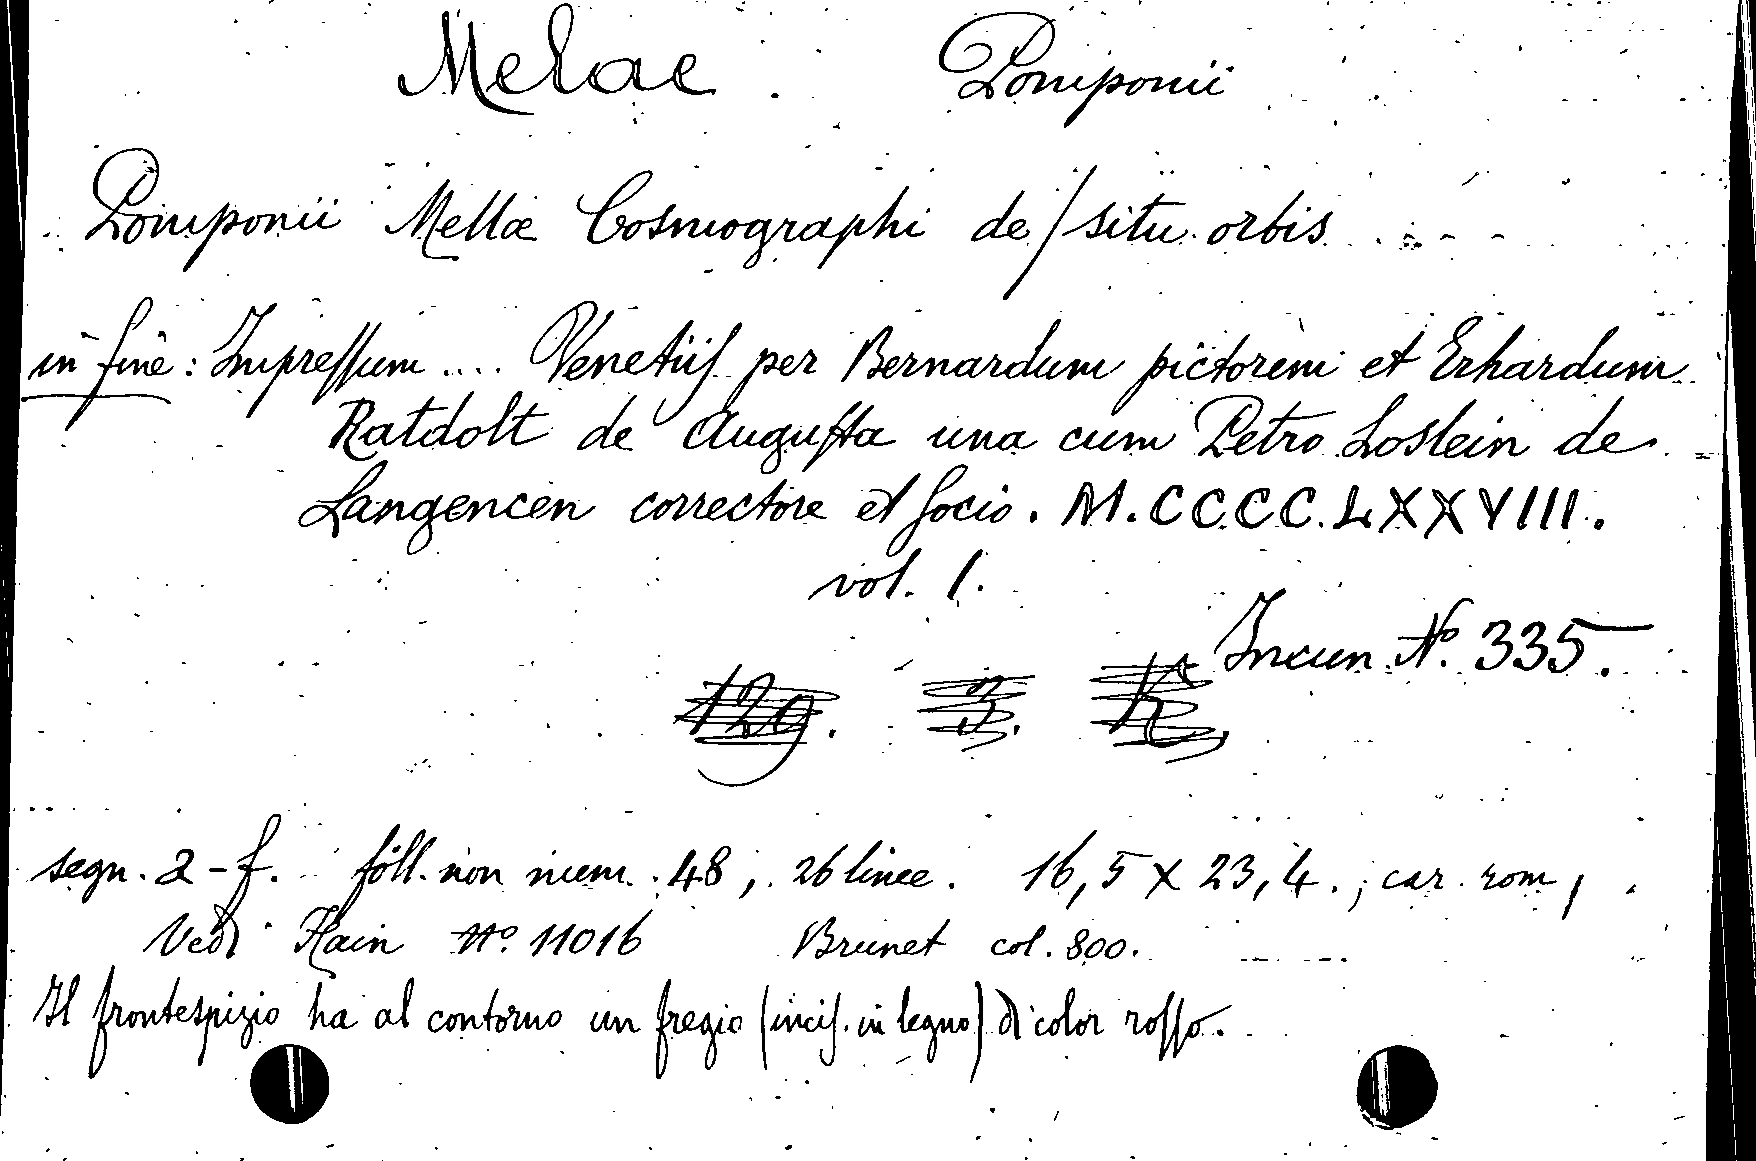 Melae Pomponii
Pomponii Mellæ Cosmographi de/situ orbis ....
in fine: Impressum .... Venetiis per Bernardum pictorem et Erhardum
Ratdolt de Augusta una cum Petro Loslein de
Langencen correctore et socio. M.CCCC.LXXVIII.
vol. 1.
Incun. Nº. 335.
129. 3.
segn. a-f. foll. non num. 48, 26 linee. 16,5 x 23,4.; car. rom,
Vedi Hain nº. 11016 Brunet col. 800.
Il frontespizio ha al contorno un fregio (incis. in legno) di color rosso.